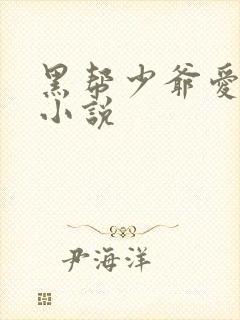 黑帮少爷爱
小说
尹海洋